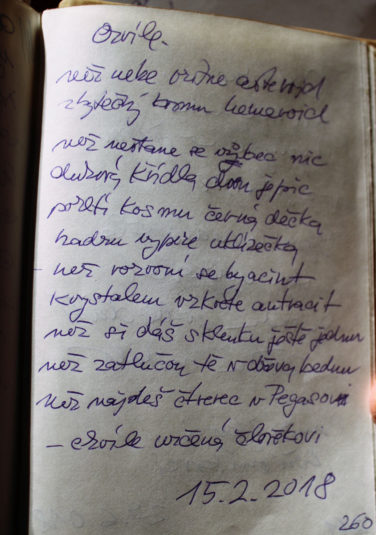 Chvíle.
než nebe vrátne asteroid
zbytečný kosmu hemeroid
než nestane se vůbec nic
duhová křídla dvou jepic
pozdí kosmu černá dečka
hadru vypere uklízečka
- než rozvoní se hyacint
krystalem vzkvete antracit
než si dáš sklenku ještě jednu
než zatlučou tě v dřevěnou bednu
než najdeš čtverec v Pegasovi
- chvíle určená člověkovi
15.2.2018
260